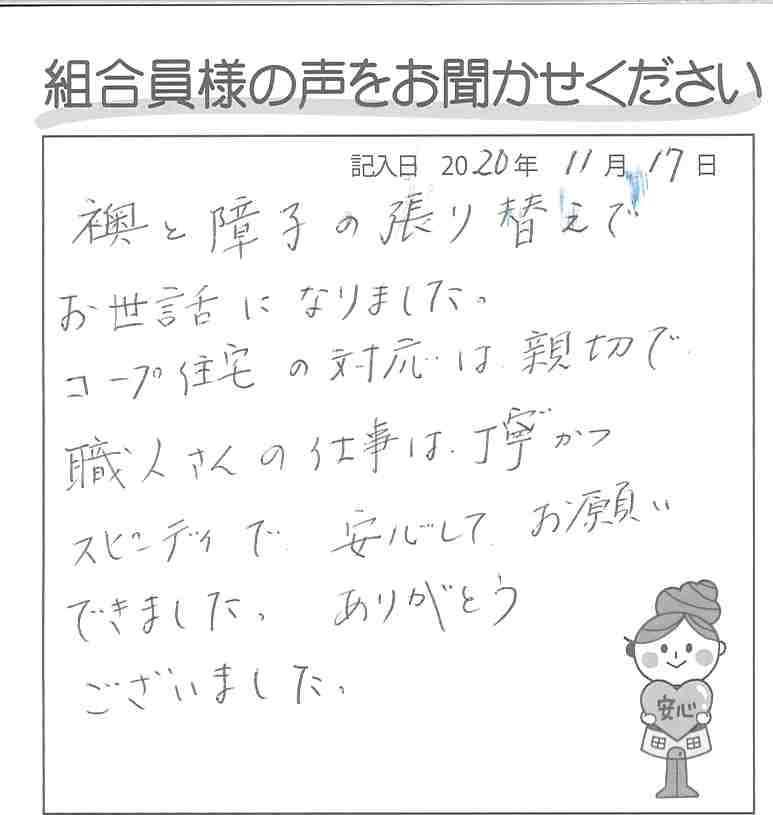 組合員様の声をお聞かせください
記入日 2020年 11月 17日
襖と障子の張り替えで
お世話になりました。
コープ住宅の対応は、親切で、
職人さんの仕事は、丁寧かつ
スピーディで、安心して、お願い
できました。ありがとう
ございました。
安心